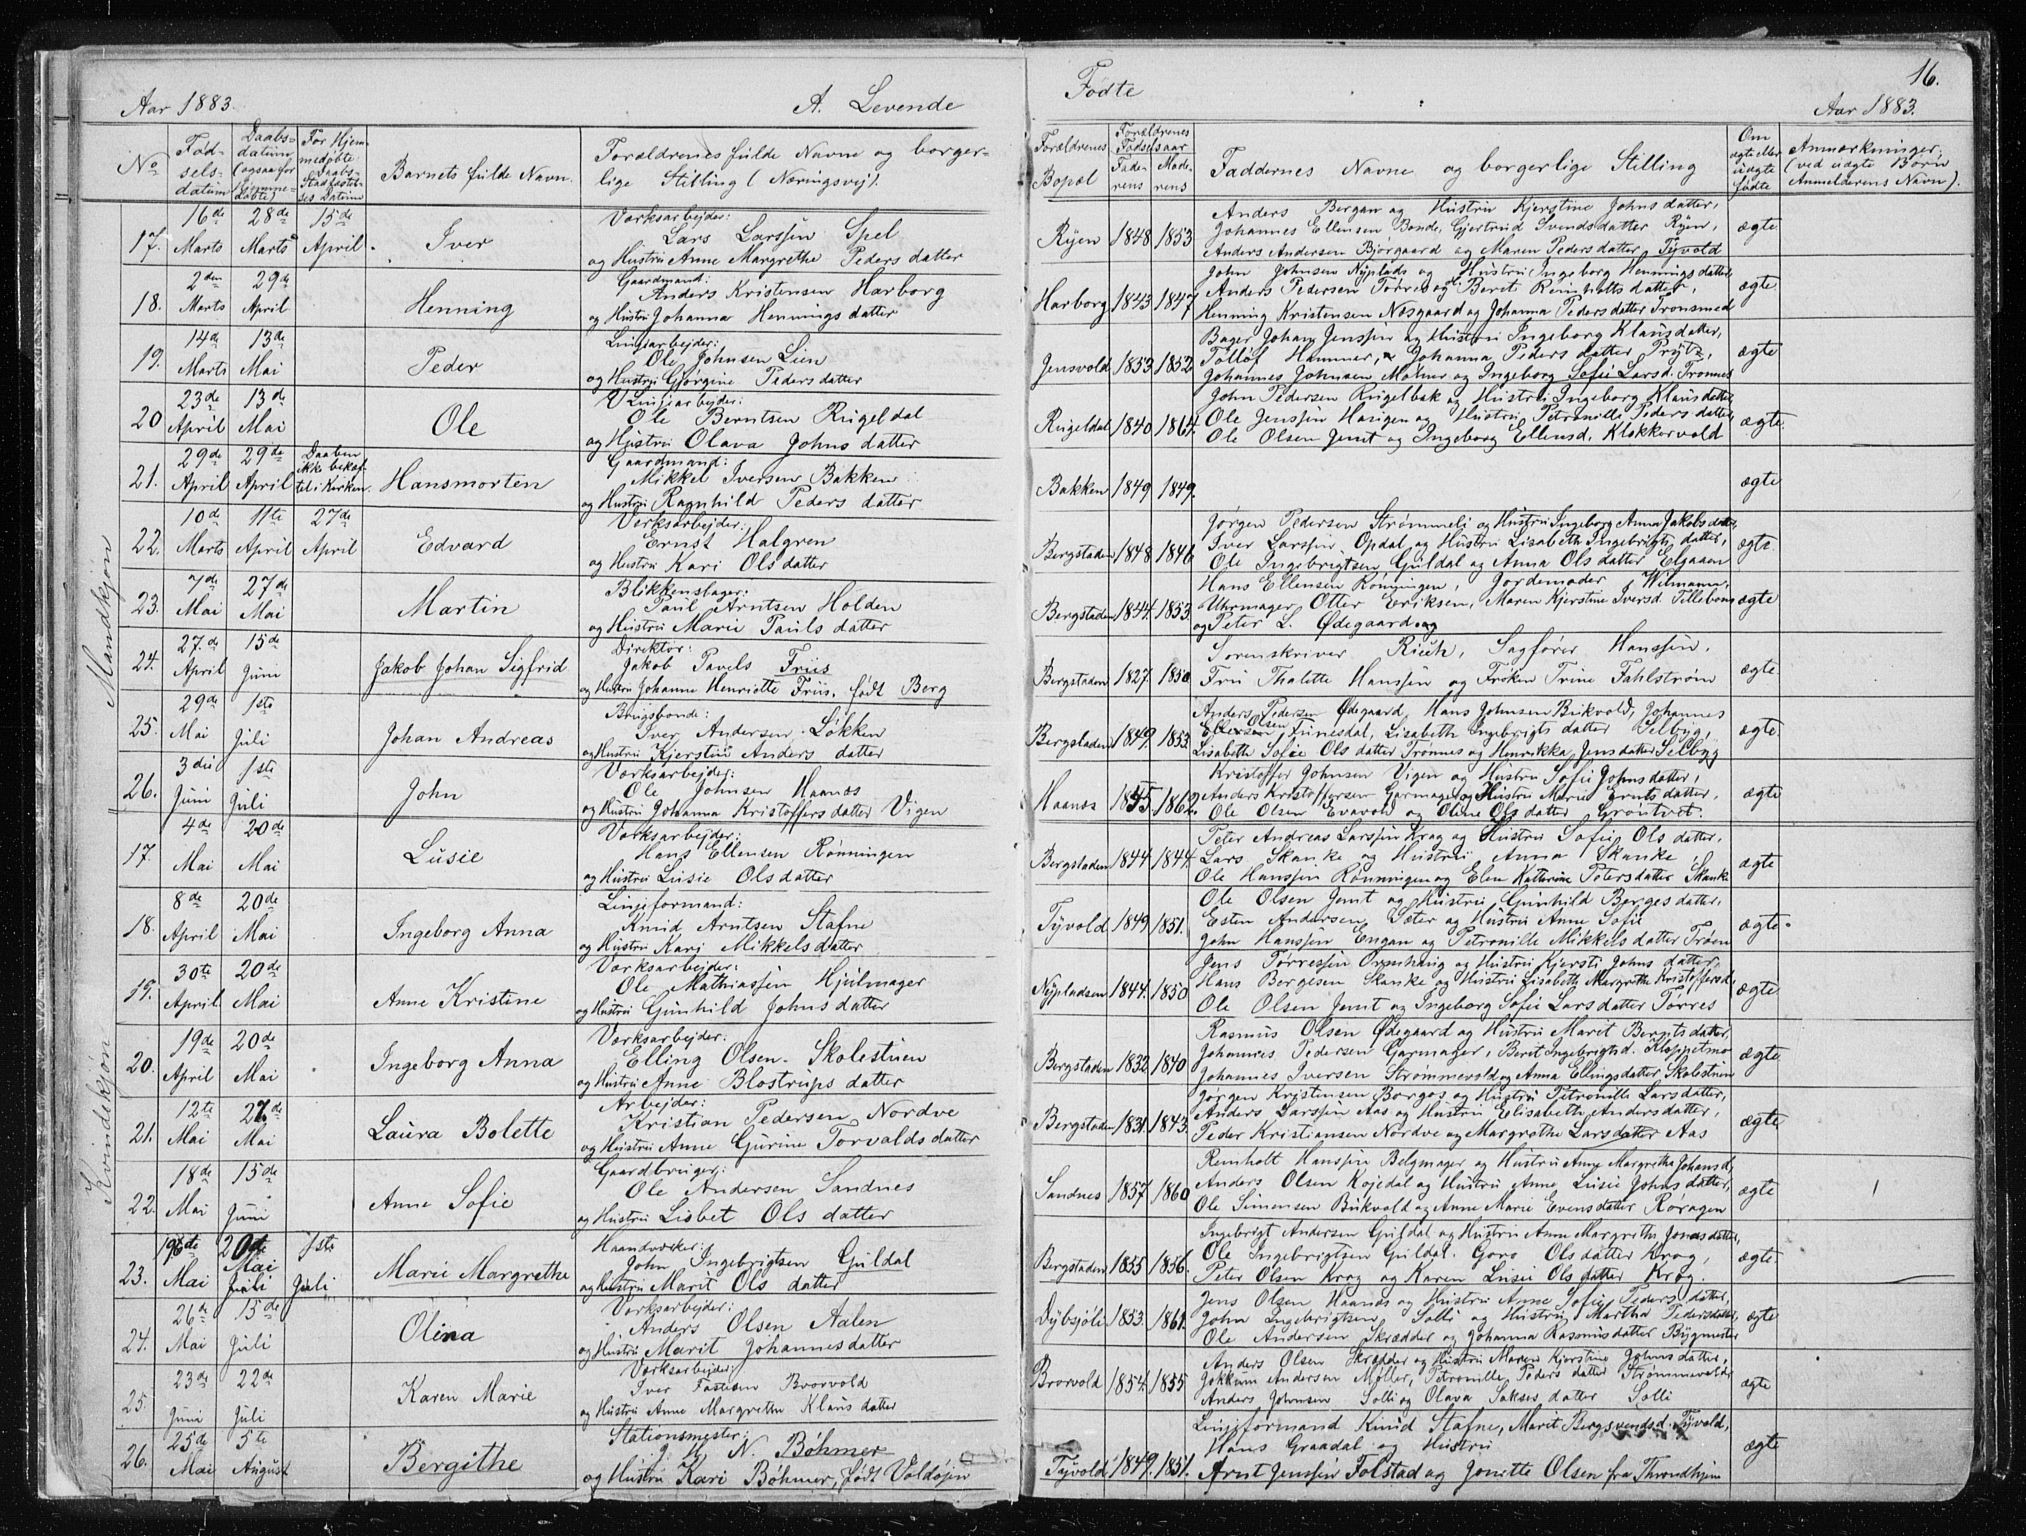 Aar 1883. A. Levende
Født
16.
Aar 1883.
No
Fødselsdatum
Daabsdatum (ogsaa for Hjemmedøbte)
For Hjemmedøbte: Daabs Stadfæstelses Datum
Barnets fulde Navn.
Forældrenes fulde Navne og borgerlige Stilling (Næringsvej).
Forældrenes Bopæl
Forældrenes Fødselsaar
Faderens
Moderens
Faddernes Navne og borgerlige Stilling
Om ægte eller uægte fødte
Anmærkninger (ved uægte Børn Anmelderens Navn).
Mandkjøn
17. 16de Marts 28de Marts 15de April Iver
Værksarbejder:
Lars Larssen Spel
og Hustru Anne Margrethe Pedersdatter
Ryen 1848 1853
Anders Bergan og Hustru Kjerstine Johnsdatter,
Johannes Ellensen Bonde, Gjertrud Svendsdatter Ryen,
Anders Andersen Bjørgaard og Maren Pedersdatter Tyvold
ægte
18. 2den Marts 29de April Henning
Gaardmand:
Anders Kristensen Harborg
og Hustru Johanna Henningsdatter
Harborg 1843 1847
John Johnsen Nyplads og Hustru Ingeborg Henningsdatter,
Anders Pedersen Tørres og Berit Reinholtsdatter,
Henning Kristensen Næsgaard og Johanna Pedersdatter Tronsmed
ægte
19. 14de Marts 13de Mai Peder
Linjearbejder:
Ole Johnsen Lien
og Hustru Gjørgine Pedersdatter
Jensvold 1853 1852
Bager Johan Jenssen og Hustru Ingeborg Klausdatter,
Tollef Hammer, Johanna Pedersdatter Prytz,
Johannes Johnsen Møkner og Ingeborg Sofie Larsd. Trønnes
ægte
20 23de April 13de Mai Ole
Linjearbejder:
Ole Berntsen Rugeldal
og Hustru Olava Johnsdatter
Rugeldal 1840 1864.
John Pedersen Rugelbak og Hustru Ingeborg Klausdatter
Ole Jenssen Havigen og Hustru Petronille Pedersdatter,
Ole Olsen Jemt og Ingeborg Ellensd. Klokkervold
ægte
21. 29de April 29de April Daaben ikke bekræftet i Kirken. Hansmorten
Gaardmand:
Mikkel Iversen Bakken
og Hustru Ragnhild Pedersdatter
Bakken 1849 1849.
ægte
22. 10de Marts 11te April 27de April Edvard
Værksarbejder:
Ernst Halgren
og Hustru Kari Olsdatter
Bergstaden 1848 1846
Jørgen Pedersen Strømmeli og Hustru Ingeborg Anna Jakobsdatter,
Iver Larssen Opdal og Hustru Lisabeth Ingebrigtsdatter,
Ole Ingebrigtsen Guldal og Anna Olsdatter Elgaaen
ægte
23. 7de Mai 27de Mai Martin
Blikkenslager:
Paul Arntsen Holden
og Hustru Marie Paulsdatter
Bergstaden 1844. 1853.
Hans Ellensen Rønningen, Jordemoder Wilmann,
Uhrmager Otter Eriksen, Maren Kjerstine Iversd. Tillebom
og Peter L. Ødegaard.
ægte
24. 27.de April 15de Juni Jakob Johan Sigfrid
Direktør:
Jakob Pavels Friis
og Hustru Johanne Henriette Friis, født Berg
Bergstaden 1827 1850
Sorenskriver Rieck, Sagfører Hanssen,
Fru Thalette Hanssen og Frøken Trine Fahlstrøm
ægte.
25. 29de Mai 1ste Juli Johan Andreas
Brugsbonde:
Iver Andersen Løkken
og Hustru Kjerstin Andersdatter
Bergstaden 1849. 1853.
Anders Pedersen Ødegaard, Hans Johnsen Bukvold, Johannes
Ellensen Olsen Funesdal, Lisabeth Ingebrigtsdatter Selbyg,
Lisabeth Sofie Olsdatter Trønnes og Henrikka Jensdatter Selbyg
ægte.
26. 3die Juni 1ste Juli John
Værksarbejder:
Ole Johnsen Haanæs
og Hustru Johanna Kristoffersdatter Vigen
Haanæs 1855. 1862.
Kristoffer Johnsen Vigen og Hustru Sofie Johnsdatter,
Anders Kristoffersen Garmager og Hustru Marie Arntsdatter,
Ole Olsen Evavold og Oline Olsdatter Grøntvet.
ægte
Kvindekjøn
17. 4de Mai 20de Mai Lusie
Værksarbejder:
Hans Ellensen Rønningen
og Hustru Lusie Olsdatter
Bergstaden 1844. 1844.
Peter Andreas Larssen Krog og Hustru Sofie Olsdatter,
Lars Skanke og Hustru Anna Skanke,
Ole Hanssen Rønningen og Elen Katherine Petersdatter Skanke
ægte
18. 8de April 20de Mai Ingeborg Anna
Linjeformand:
Knud Arntsen Stafne
og Hustru Kari Mikkelsdatter
Tyvold 1849. 1851.
Ole Olsen Jemt og Hustru Gunhild Børgesdatter,
Esten Andersen Sæter og Hustru Anne Sofie
John Hanssen Engan og Petronille Mikkelsdatter Trøen
ægte.
19. 30te April 20de Mai Anne Kristine
Værksarbejder:
Ole Mathiassen Hjulmager
og Hustru Gunhild Johnsdatter
Nypladsen 1844. 1850
Jens Tørressen Ormhaug og Hustru Kjersti Johnsdatter,
Hans Børgesen Skanke og Hustru Lisabeth Margrethe Kristoffersd.
Ole Olsen Jemt og Ingeborg Sofie Larsdatter Tørres
ægte
20. 19de April 20de Mai Ingeborg Anna
Værksarbejder:
Elling Olsen Skolestuen
og Hustru Anne Blostrupsdatter
Bergstaden 1832 1840
Rasmus Olsen Ødegaard og Hustru Marit Berntsdatter,
Johannes Pedersen Garmager, Berit Ingebrigtsd. Kloppetmo
Johannes Iversen Strømmevold og Anna Ellingsdatter Skolestuen
ægte
21. 12te Mai 27de Mai Laura Bolette
Arbejder:
Kristian Pedersen Nordve
og Hustru Anne Gurine Torvaldsdatter
Bergstaden 1831. 1843.
Jørgen Kristensen Borgos og Hustru Petronille Larsdatter,
Anders Larssen Aas og Hustru Elisabeth Andersdatter,
Peder Kristiansen Nordve og Margrethe Larsdatter Aas
ægte
22. 18de Mai 15de Juni Anne Sofie
Gaardbruger:
Ole Andersen Sandnes
og Hustru Lisbet Olsdatter
Sandnes 1857. 1860
Reinholt Hanssen Belgmager og Hustru Anne Margretha Johansd,
Anders Olsen Kojedal og Hustru Anne Lusie Johnsdatter,
Ole Simensen Bukvold og Anne Marie Evensdatter Røragen
ægte
23. 19de Mai 20de Mai Juli 1ste Juli Marie Margrethe
Haandværker:
John Ingebrigtsen Guldal
og Hustru Marit Olsdatter
Bergstaden 1855 1856.
Ingebrigt Andersen Guldal og Hustru Anne Margrethe Jonasdatter,
Ole Ingebrigtsen Guldal. Goro Olsdatter Krog,
Peter Olsen Krog og Karen Lusie Olsdatter Krog.
ægte
24. 26de Mai 15de Juli Olina
Værksarbejder:
Anders Olsen Aalen
og Hustru Marit Johannesdatter
Dybsjøli 1853. 1861.
Jens Olsen Haanæs og Hustru Anne Sofie Pedersdatter,
John Ingebrigtsen Solli og Hustru Martha Pedersdatter,
Ole Andersen Skrædder og Johanna Rasmusdatter Bygmester
ægte
25. 23de Juni 22de Juli Karen Marie
Værksarbejder:
Iver Fastesen Brorvold
og Hustru Anne Margrethe Klausdatter
Brorvold 1854. 1855
Anders Olsen Skrædder og Hustru Maren Kjerstine Johnsdatter,
Jokkum Andersen Møller, Petronille Pedersdatter Strømmevold,
Anders Johnsen Solli og Olava Saksesdatter Solli
ægte
26. 25de Mai 5te August Bergithe
Stationsmester:
J. H. N. Bøhmer
og Hustru Kari Bøhmer, født Voldsjen
Tyvold 1849. 1851.
Linjeformand Knud Stafne, Marit Bergsvendsd. Tyvold,
Hans Graadal og Hustru
Arnt Jenssen Folstad og Jonette Olsen fra Throndhjem
ægte